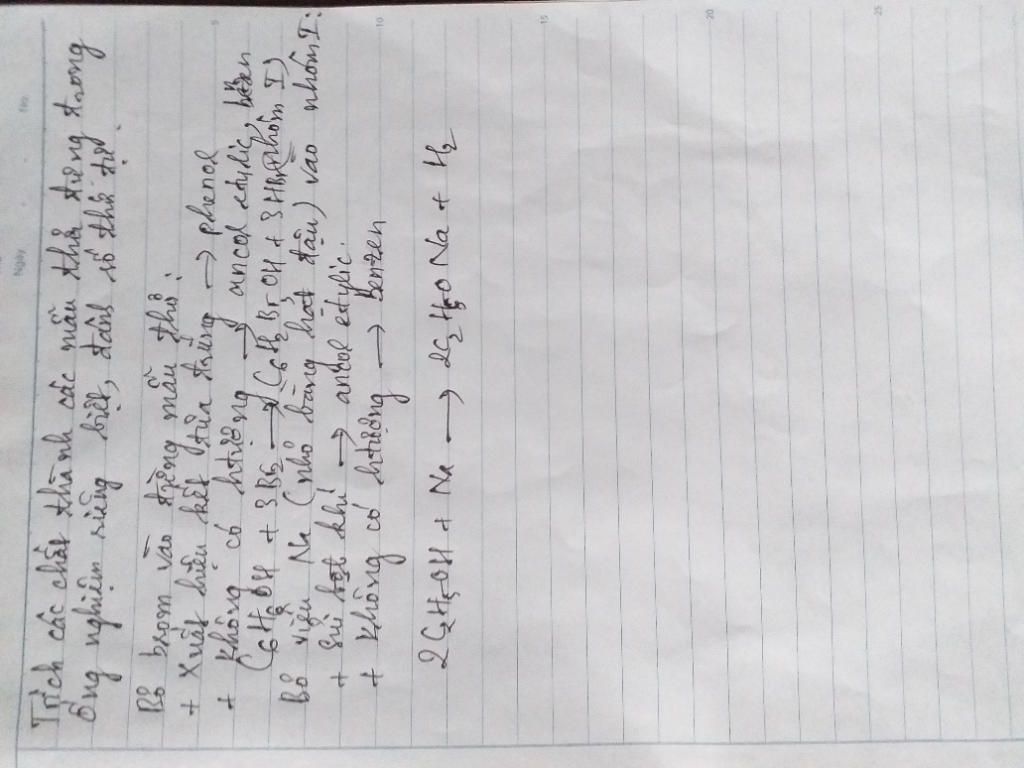 Ngày
No.
5
10
15
20
25
Trích các chất thành các mẫu thử đựng trong
ống nghiệm riêng biệt, đánh số thứ tự.
Bỏ brom vào từng mẫu thử:
+ Xuất hiện kết tủa trắng → phenol
+ Không có htượng → ancol etylic, bezen
C6H5OH + 3Br2 → C6H2BrOH + 3HBr (nhóm I)
Bỏ viên Na (nhỏ bằng hạt đậu) vào nhóm I:
+ Sủi bọt khí → ancol etylic
+ Không có htượng → Benzen
2C2H5OH + Na → 2C2H5ONa + H2